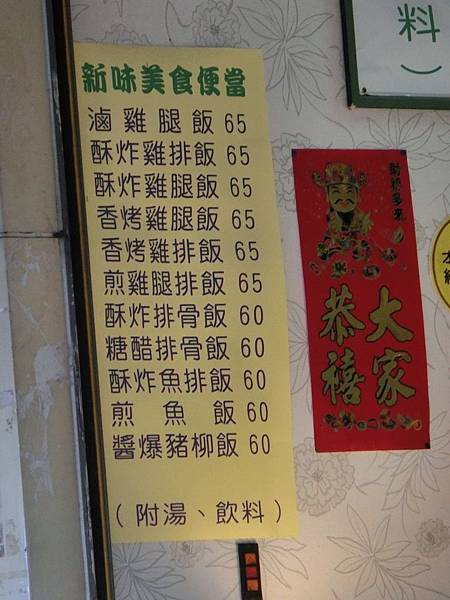 新味美食便當
滷雞腿飯 65
酥炸雞排飯 65
酥炸雞腿飯 65
香烤雞腿飯 65
香烤雞排飯 65
煎雞腿排飯 65
酥炸排骨飯 60
糖醋排骨飯 60
酥炸魚排飯 60
煎魚飯 60
醬爆豬柳飯 60
(附湯、飲料)
料)
財神多來
大家
恭禧